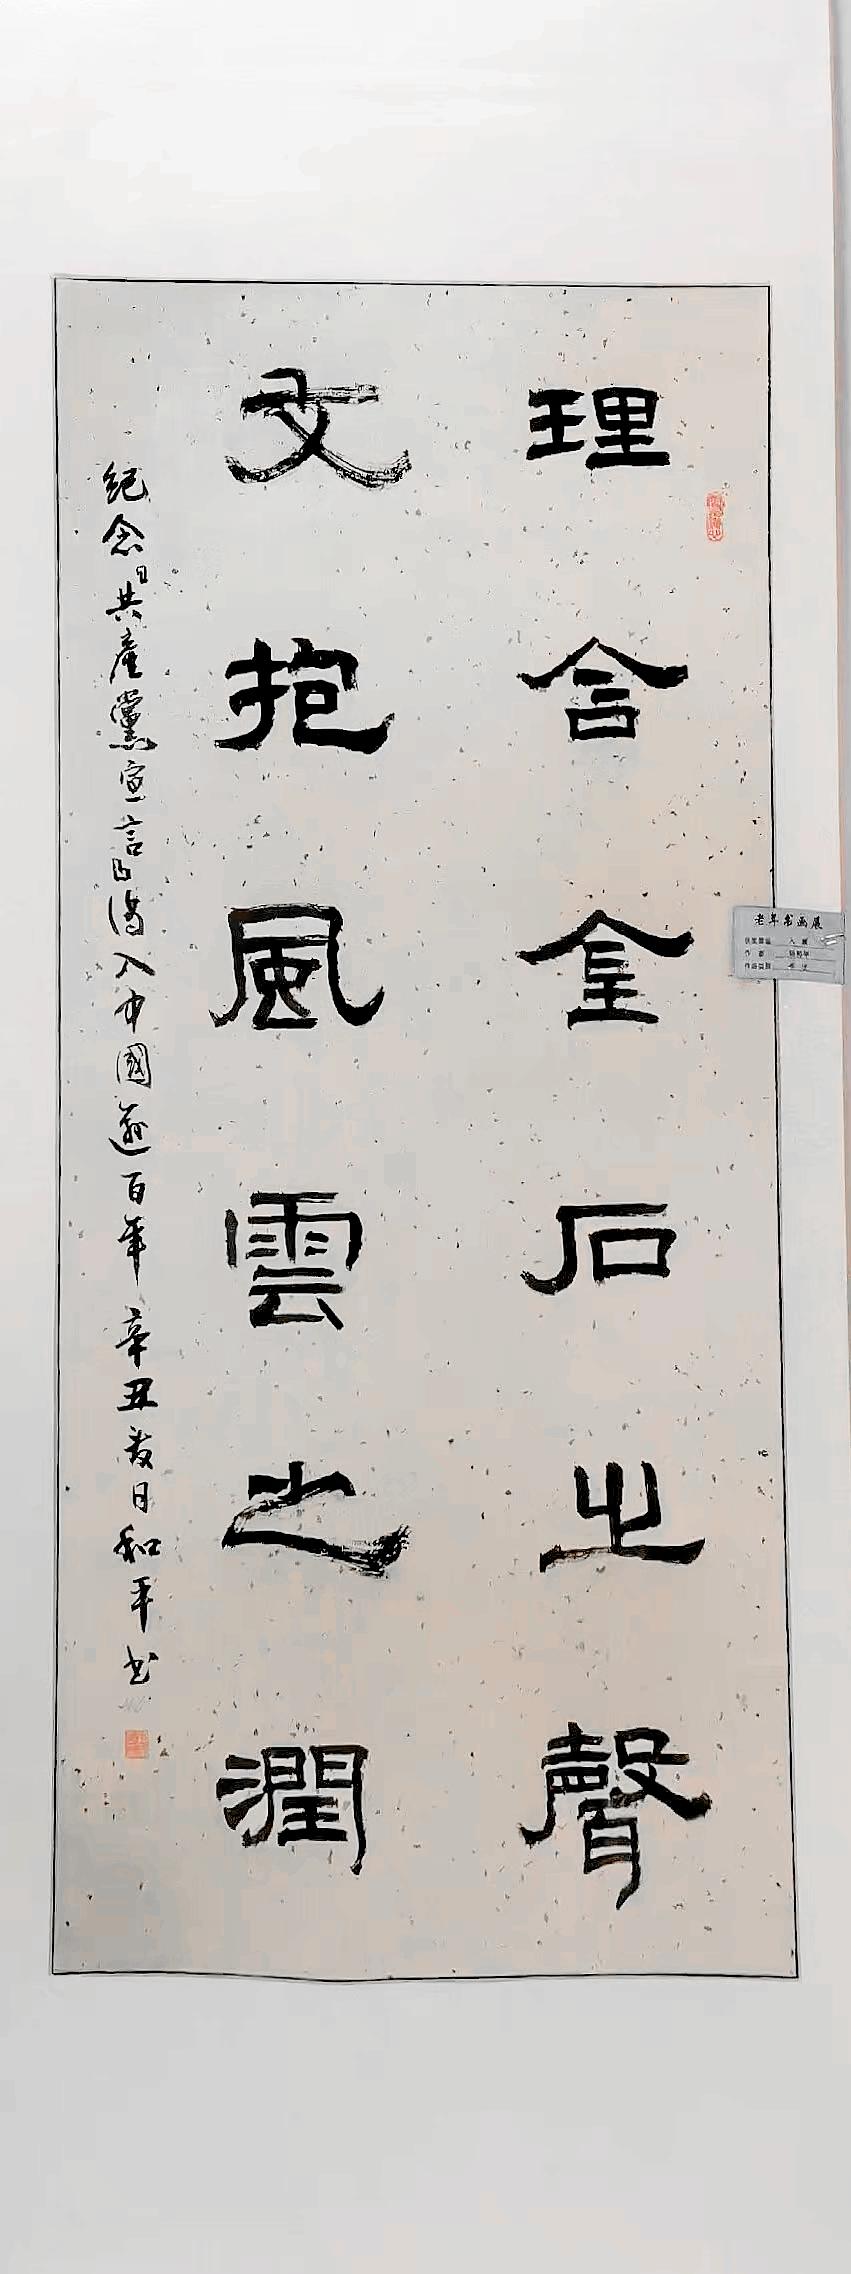 理含金石之聲
文抱風雲之潤
紀念「共產黨宣言」傳入中國逾百年 辛丑夏日和平书
老年书画展